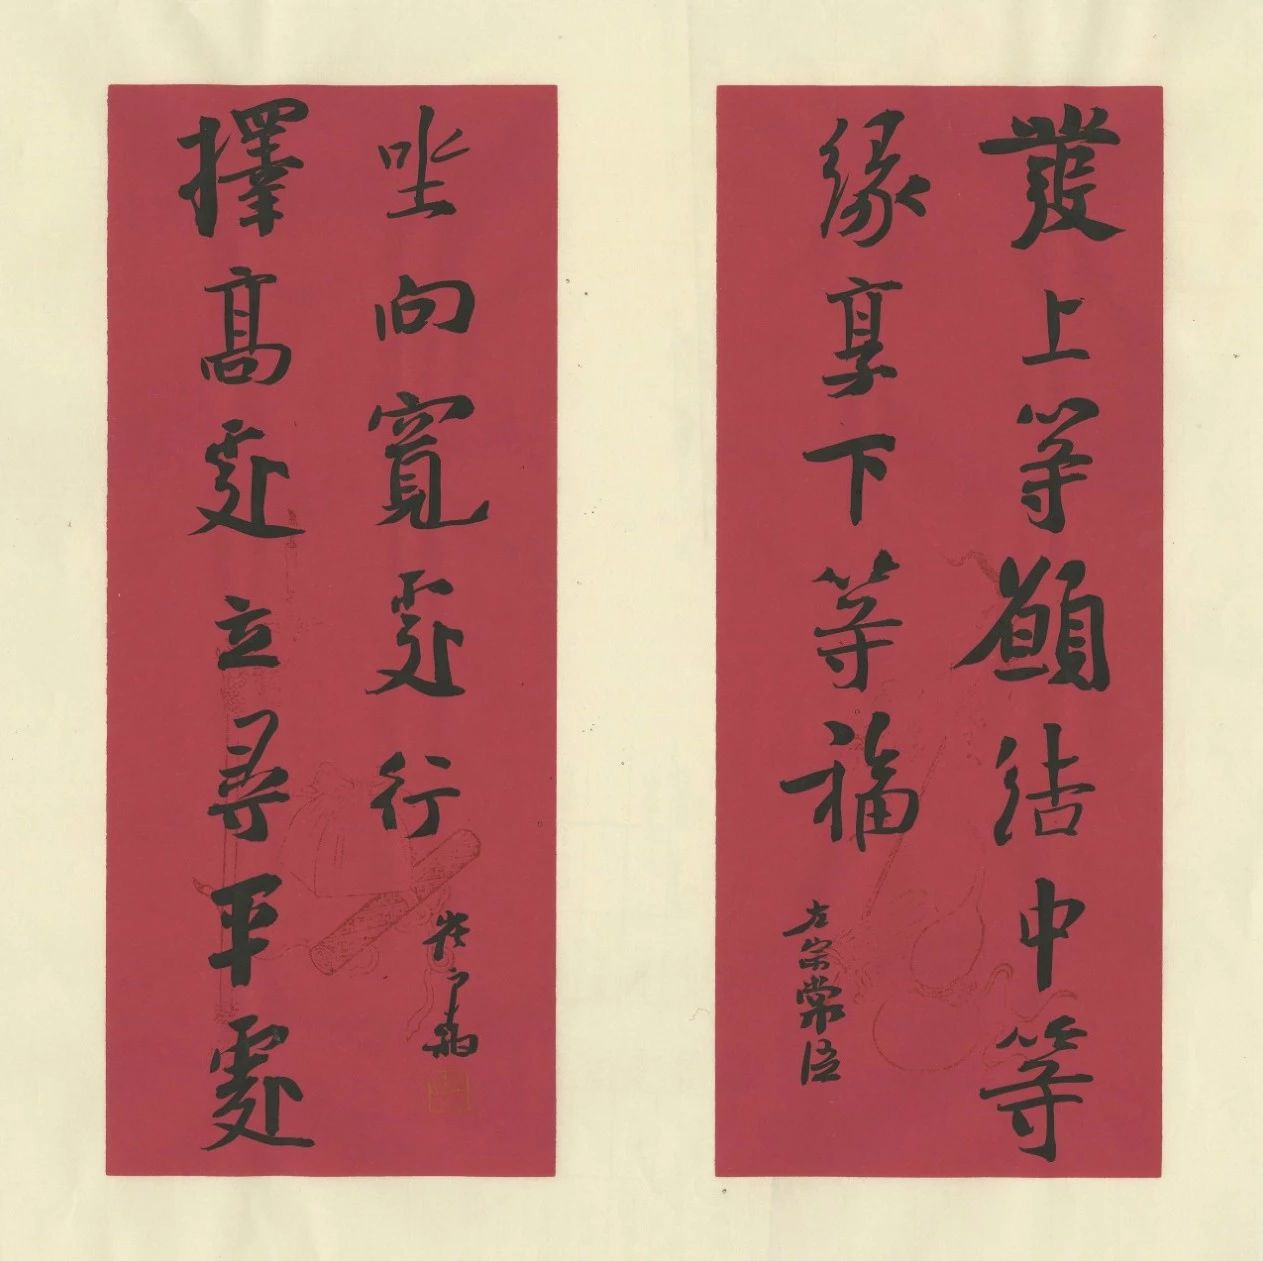 發上等願結中等
緣享下等福
左宗棠語
擇高處立尋平處
坐向寬處行